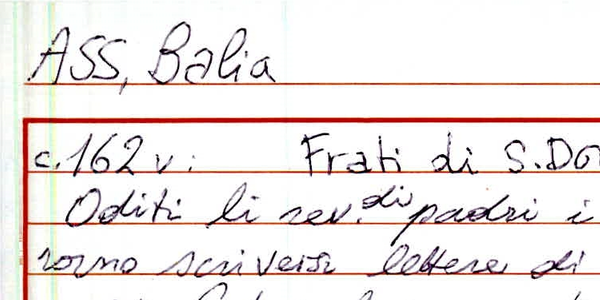 ASS, Balia
c. 162 v: Frati di S. Do
Oditi li rev.di padri i
scriversi lettere di